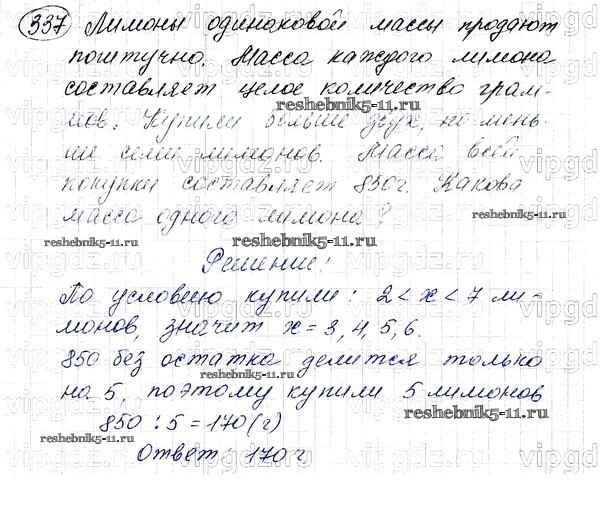 337 Лимоны одинаковой массы продают
поштучно. Масса каждого лимона
составляет целое количество грам-
мов. Купили больше двух, но мень-
ше семи лимонов. Масса всей
покупки составляет 850г. Какова
масса одного лимона?
Решение:
По условию купили: 2 < x < 7 ли-
монов, значит x = 3, 4, 5, 6.
850 без остатка делится только
на 5, поэтому купили 5 лимонов
850 : 5 = 170 (г)
Ответ: 170 г
reshebnik5-11.ru
reshebnik5-11.ru
reshebnik5-11.ru
reshebnik5-11.ru
reshebnik5-11.ru
reshebnik5-11.ru
vipgdz.ru